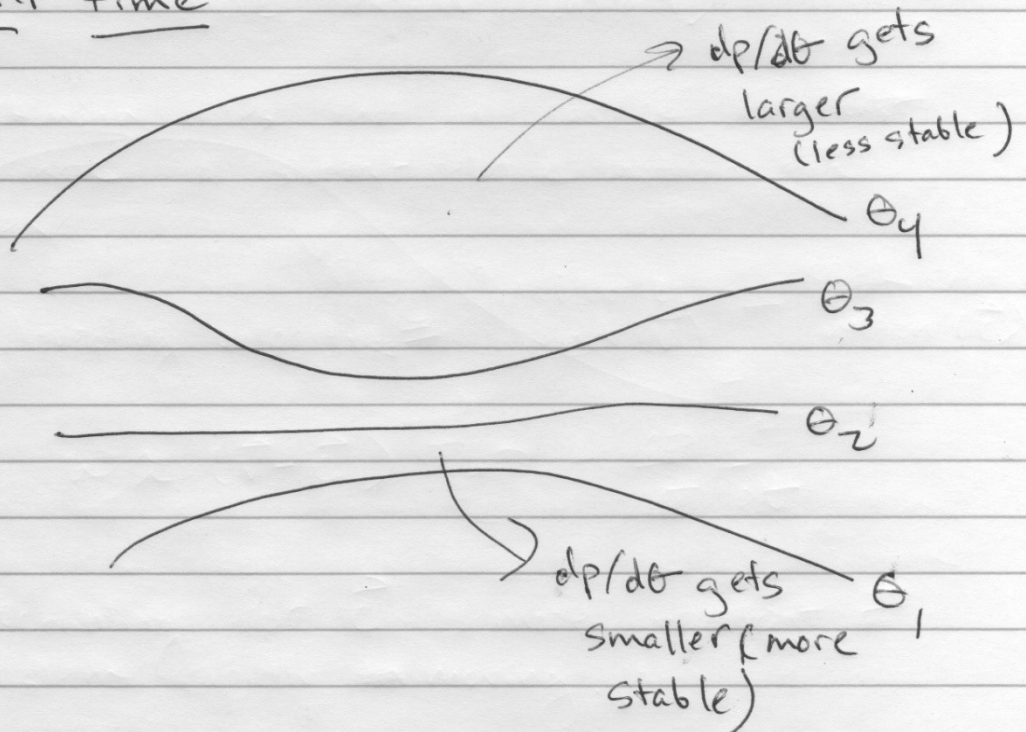 time
dp/dθ gets
larger
(less stable)
θ4
θ3
θ2
dp/dθ gets
θ1
smaller (more
stable)